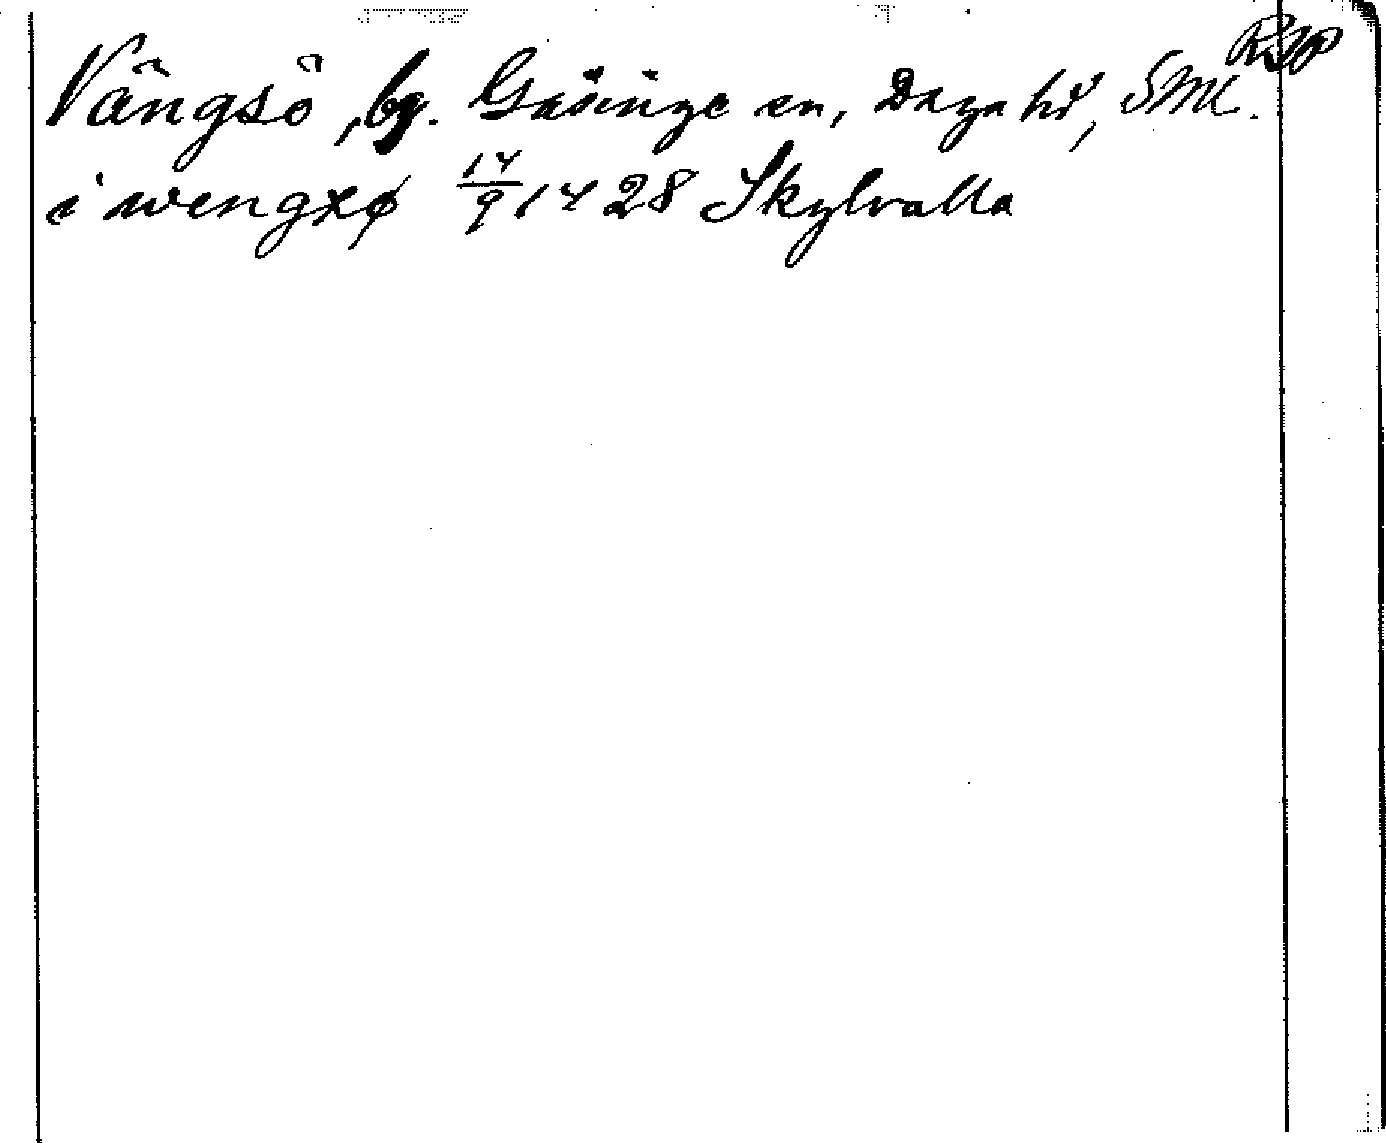 Vängsö, by. Gåsinge sn, Daga hd, Sml.
i wengxø 14/9 1428 Skylvalla